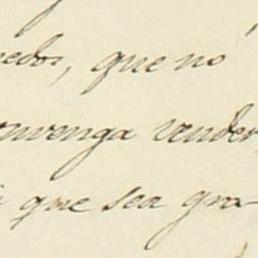 edos, que no
onvenga vender
que sea gra-